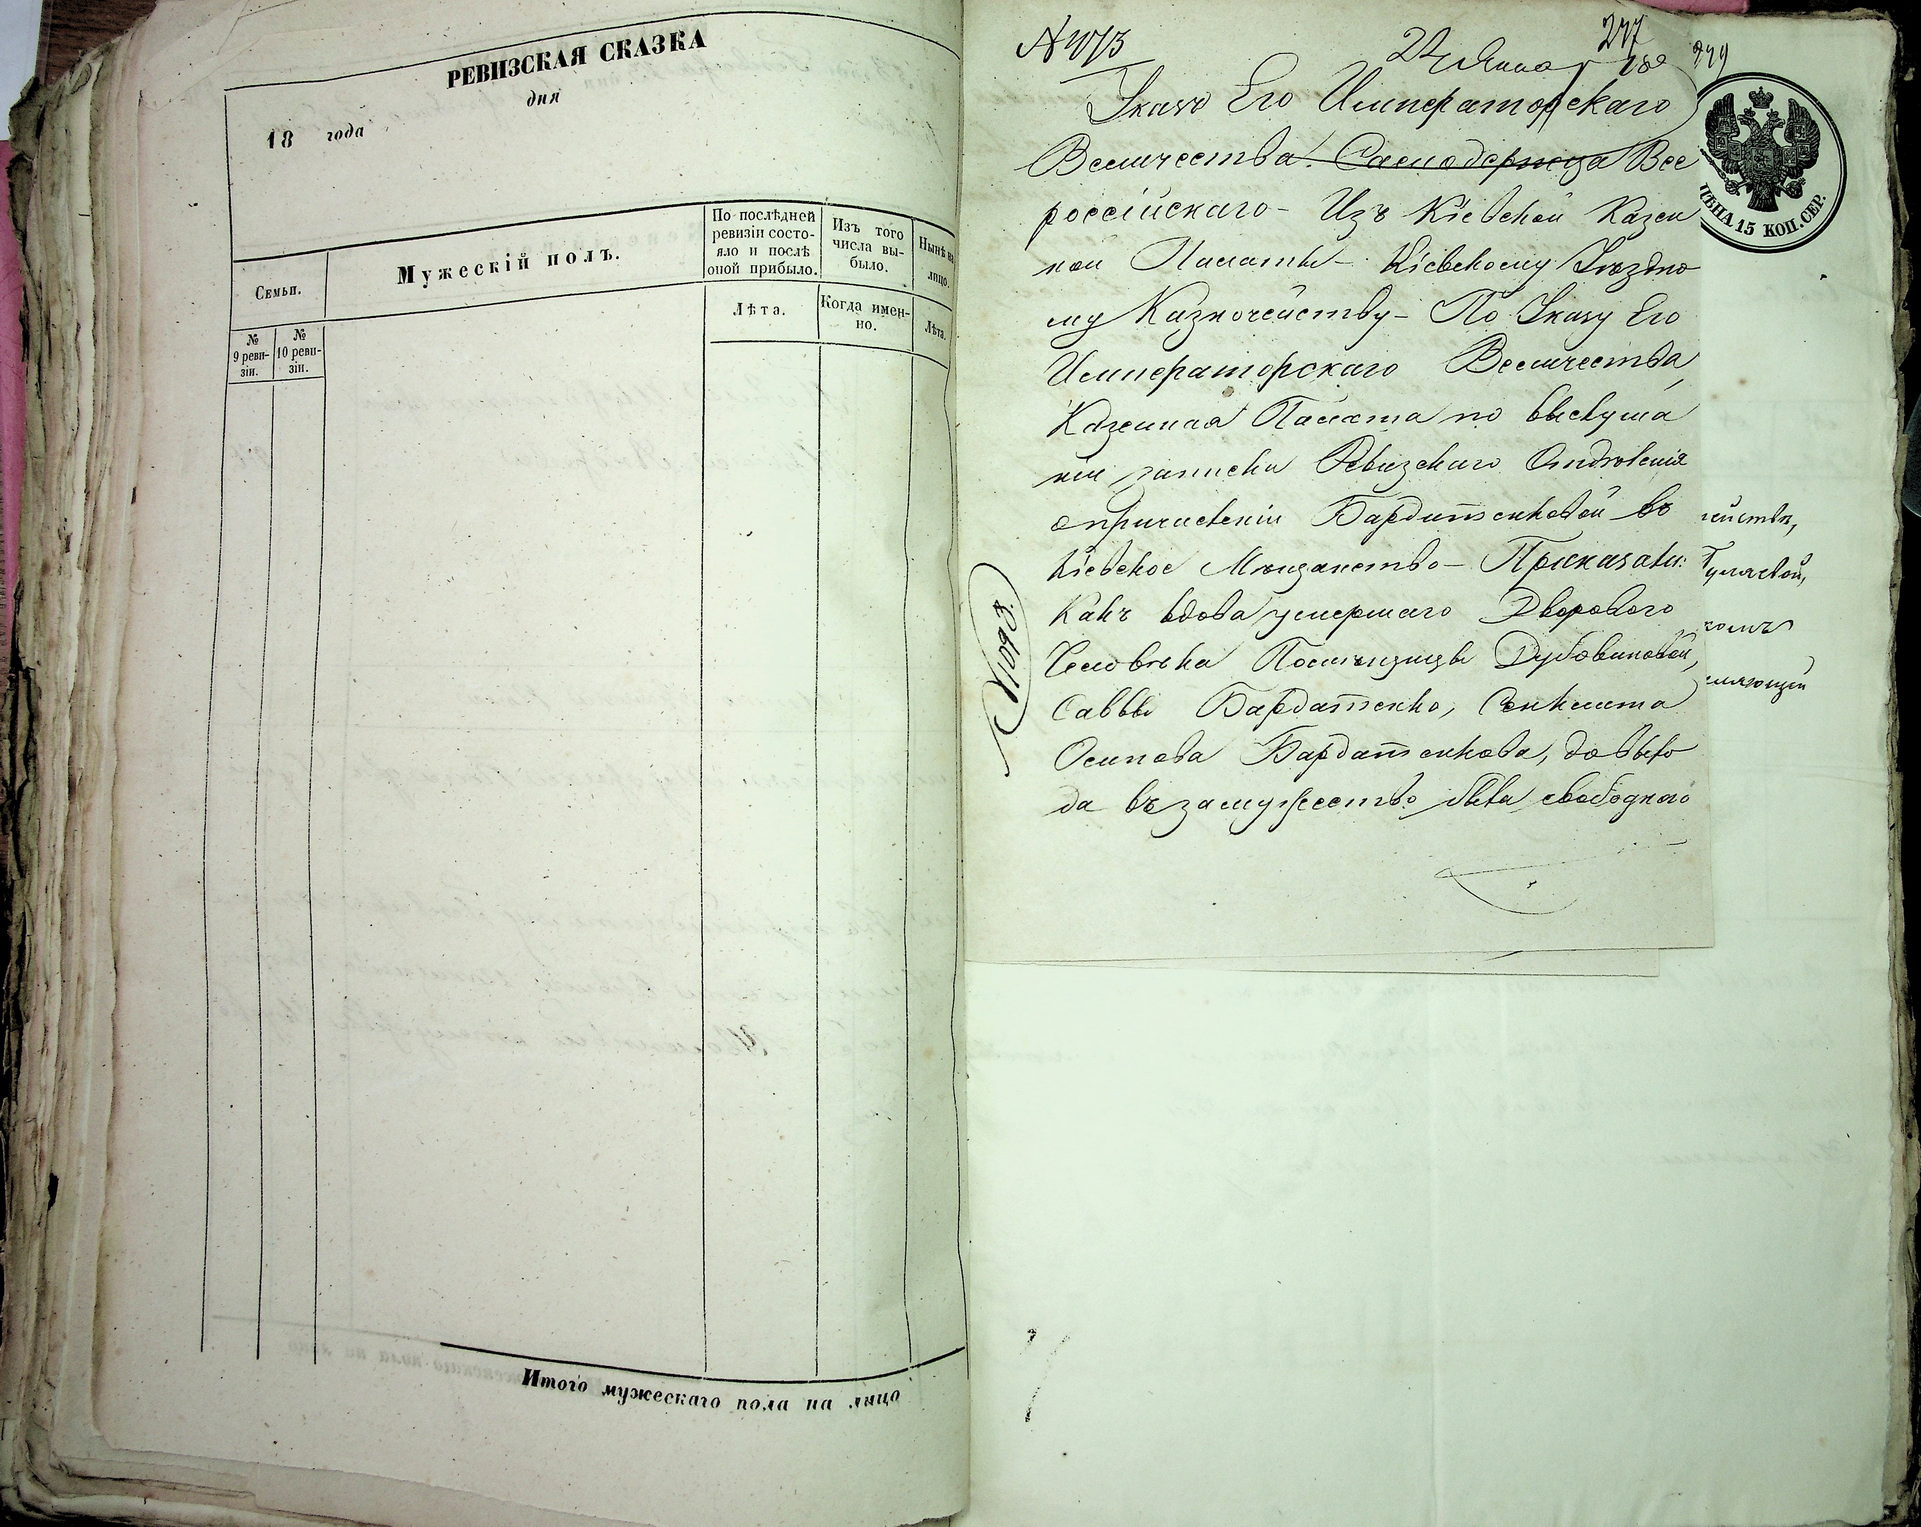 РЕВИЗСКАЯ СКАЗКА
дня
18 года
Семьи.
Мужескій полъ.
По послѣдней ревизіи состо-
яло и послѣ
оной прибыло.
Изъ того
числа вы-
было.
Нынѣ на
лицо.
№
9 реви-
зіи.
№
10 реви-
зіи.
Лѣта.
Когда имен-
но.
Лѣта.
Итого мужескаго пола на лицо
277
279
22
Указъ Его Императорскаго
Величества Самодержца Все
россійскаго - Изъ Кіевской Казен
ной Палаты - Кіевскому Уѣздно
му Казночейству - По Указу Его
Императорскаго Величества
Казенная Палата по выслуша
ніи записки Ревизскаго Отдѣленія
о причисленіи въ
Кіевское Мѣщанство - Приказали:
Какъ вдова умершаго Двороваго
Человѣка Помѣщицы Дубовиковой,
Саввы
Осипова довыхо
да въ замужество была свободнаго
ЦѢНА 15 КОП. СЕР.